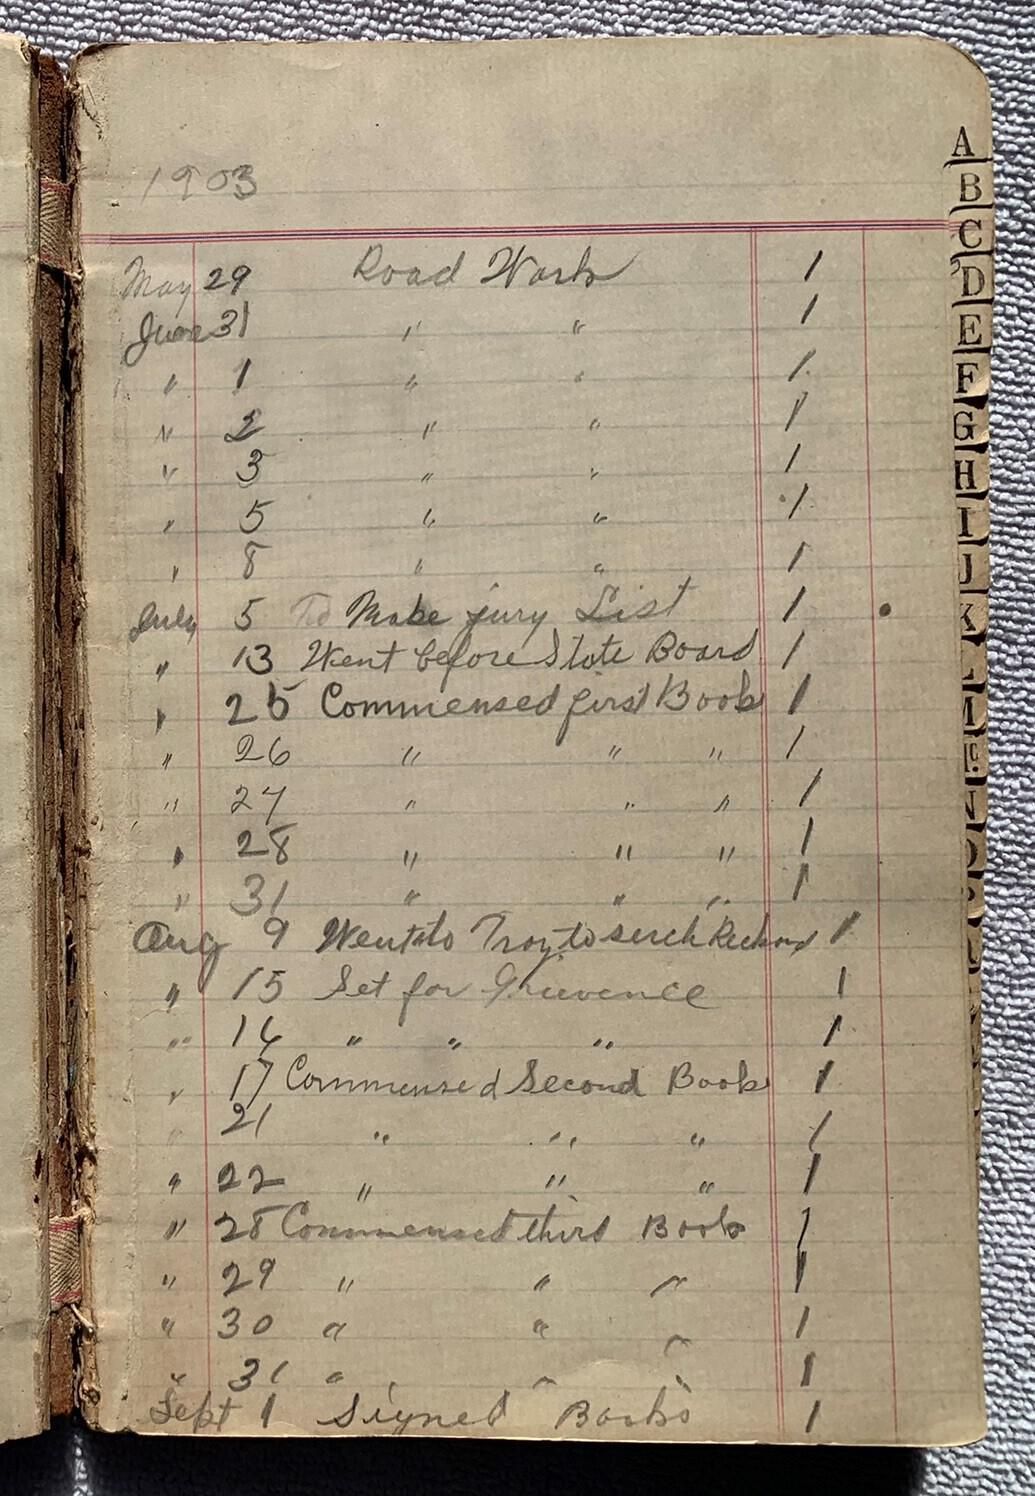 1903
May 29 Road Work 1
June 31 " " 1
" 1 " " 1
" 2 " " 1
" 3 " " 1
" 5 " " 1
" 8 " " 1
July 5 To Make jury List 1
" 13 Went before State Board 1
" 25 Commensed first Book 1
" 26 " " " 1
" 27 " " " 1
" 28 " " " 1
" 31 " " " 1
Aug 9 Went to Troy to serch 1
" 15 Set for Grievence 1
" 16 " " " 1
" 17 Commensed Second Book 1
" 21 " " " 1
" 22 " " " 1
" 28 Commensed third Book 1
" 29 " " " 1
" 30 " " " 1
" 31 " " " 1
Sept 1 Signed Books 1
A
B
C
D
E
F
G
H
I
J
K
L
N